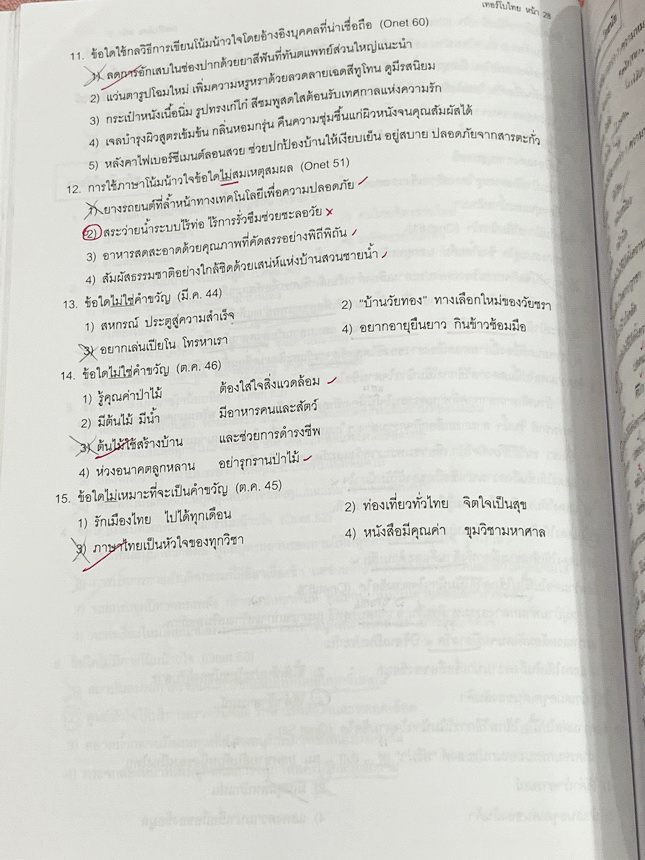 เทอร์โบไทย หน้า 28
11. ข้อใดใช้กลวิธีการเขียนโน้มน้าวใจโดยอ้างอิงบุคคลที่น่าเชื่อถือ (Onet 60)
1) ลดการอักเสบในช่องปากด้วยยาสีฟันที่ทันตแพทย์ส่วนใหญ่แนะนำ
2) แว่นตารูปโฉมใหม่ เพิ่มความหรูหราด้วยลวดลายเฉดสีทูโทน ดูมีรสนิยม
3) กระเป๋าหนังเนื้อนิ่ม รูปทรงเก๋ไก๋ สีชมพูสดใสต้อนรับเทศกาลแห่งความรัก
4) เจลบำรุงผิวสูตรเข้มข้น กลิ่นหอมกรุ่น คืนความชุ่มชื้นแก่ผิวหนังจนคุณสัมผัสได้
5) หลังคาไฟเบอร์ซีเมนต์ลอนสวย ช่วยปกป้องบ้านให้เงียบเย็น อยู่สบาย ปลอดภัยจากสารตะกั่ว
12. การใช้ภาษาโน้มน้าวใจข้อใดไม่สมเหตุสมผล (Onet 51)
1) ยางรถยนต์ที่ล้ำหน้าทางเทคโนโลยีเพื่อความปลอดภัย
2) สระว่ายน้ำระบบไร้ท่อ ไร้การรั่วซึมช่วยชะลอวัย
3) อาหารสดสะอาดด้วยคุณภาพที่คัดสรรอย่างพิถีพิถัน
4) สัมผัสธรรมชาติอย่างใกล้ชิดด้วยเสน่ห์แห่งบ้านสวนชายน้ำ
13. ข้อใดไม่ใช่คำขวัญ (มี.ค. 44)
1) สหกรณ์ ประตูสู่ความสำเร็จ 2) "บ้านวัยทอง" ทางเลือกใหม่ของวัยชรา
3) อยากเล่นเปียโน โทรหาเรา 4) อยากอายุยืนยาว กินข้าวซ้อมมือ
14. ข้อใดไม่ใช่คำขวัญ (ต.ค. 46)
1) รู้คุณค่าป่าไม้ ต้องใส่ใจสิ่งแวดล้อม
2) มีต้นไม้ มีน้ำ มีอาหารคนและสัตว์
3) ต้นไม้ใช้สร้างบ้าน และช่วยการดำรงชีพ
4) ห่วงอนาคตลูกหลาน อย่ารุกรานป่าไม้
15. ข้อใดไม่เหมาะที่จะเป็นคำขวัญ (ต.ค. 45)
1) รักเมืองไทย ไปได้ทุกเดือน 2) ท่องเที่ยวทั่วไทย จิตใจเป็นสุข
3) ภาษาไทยเป็นหัวใจของทุกวิชา 4) หนังสือมีคุณค่า ขุมวิชามหาศาล